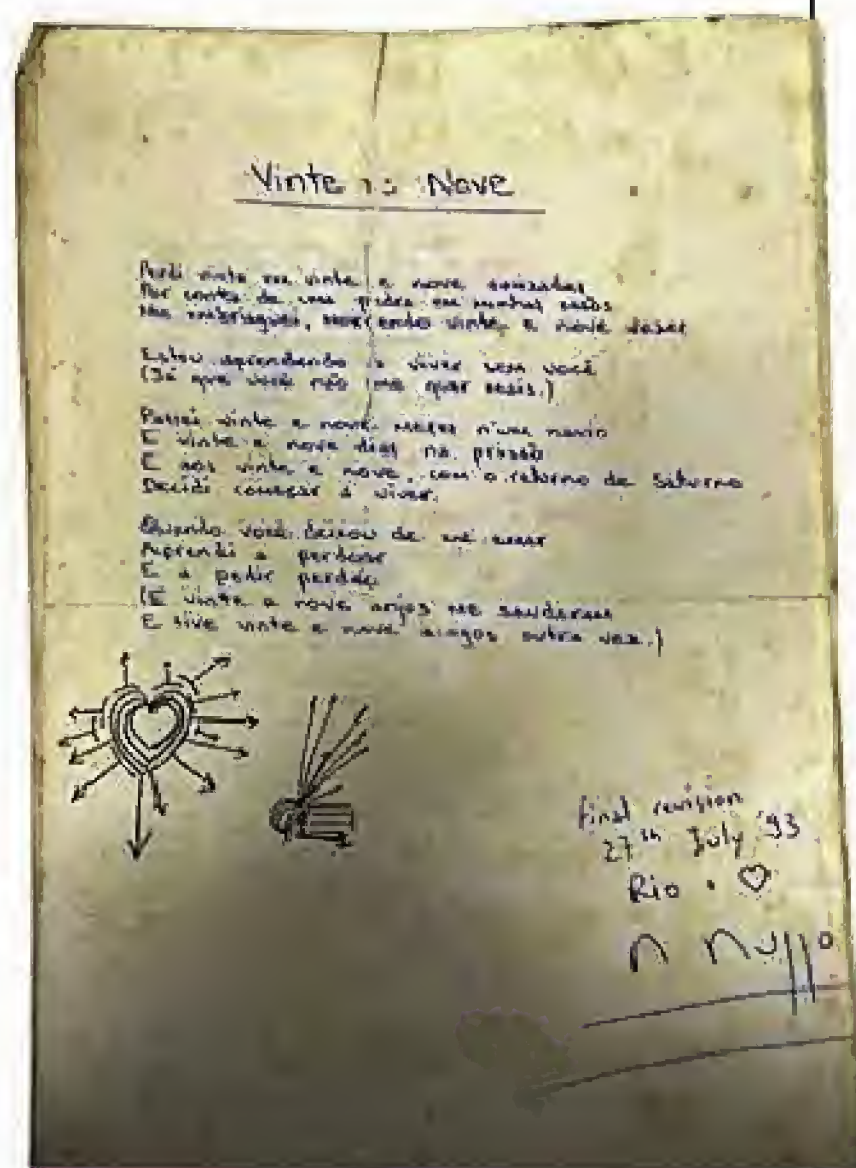 Vinte Nove
Perdi vinte em vinte e nove amizades
Por conta de uma pedra em minhas mãos
Me embriaguei, morrendo vinte e nove vezes
Estou aprendendo a viver sem você
(Já que você não me quer mais.)
Passei vinte e nove meses n'um navio
E vinte e nove dias na prisão
E aos vinte e nove, com o retorno de Saturno
Decidi começar a viver.
Quando você deixou de me amar
Aprendi a perdoar
E a pedir perdão
(E vinte e nove anjos me saudaram
E tive vinte e nove amigos outra vez.)
final revision
27th July '93
Rio